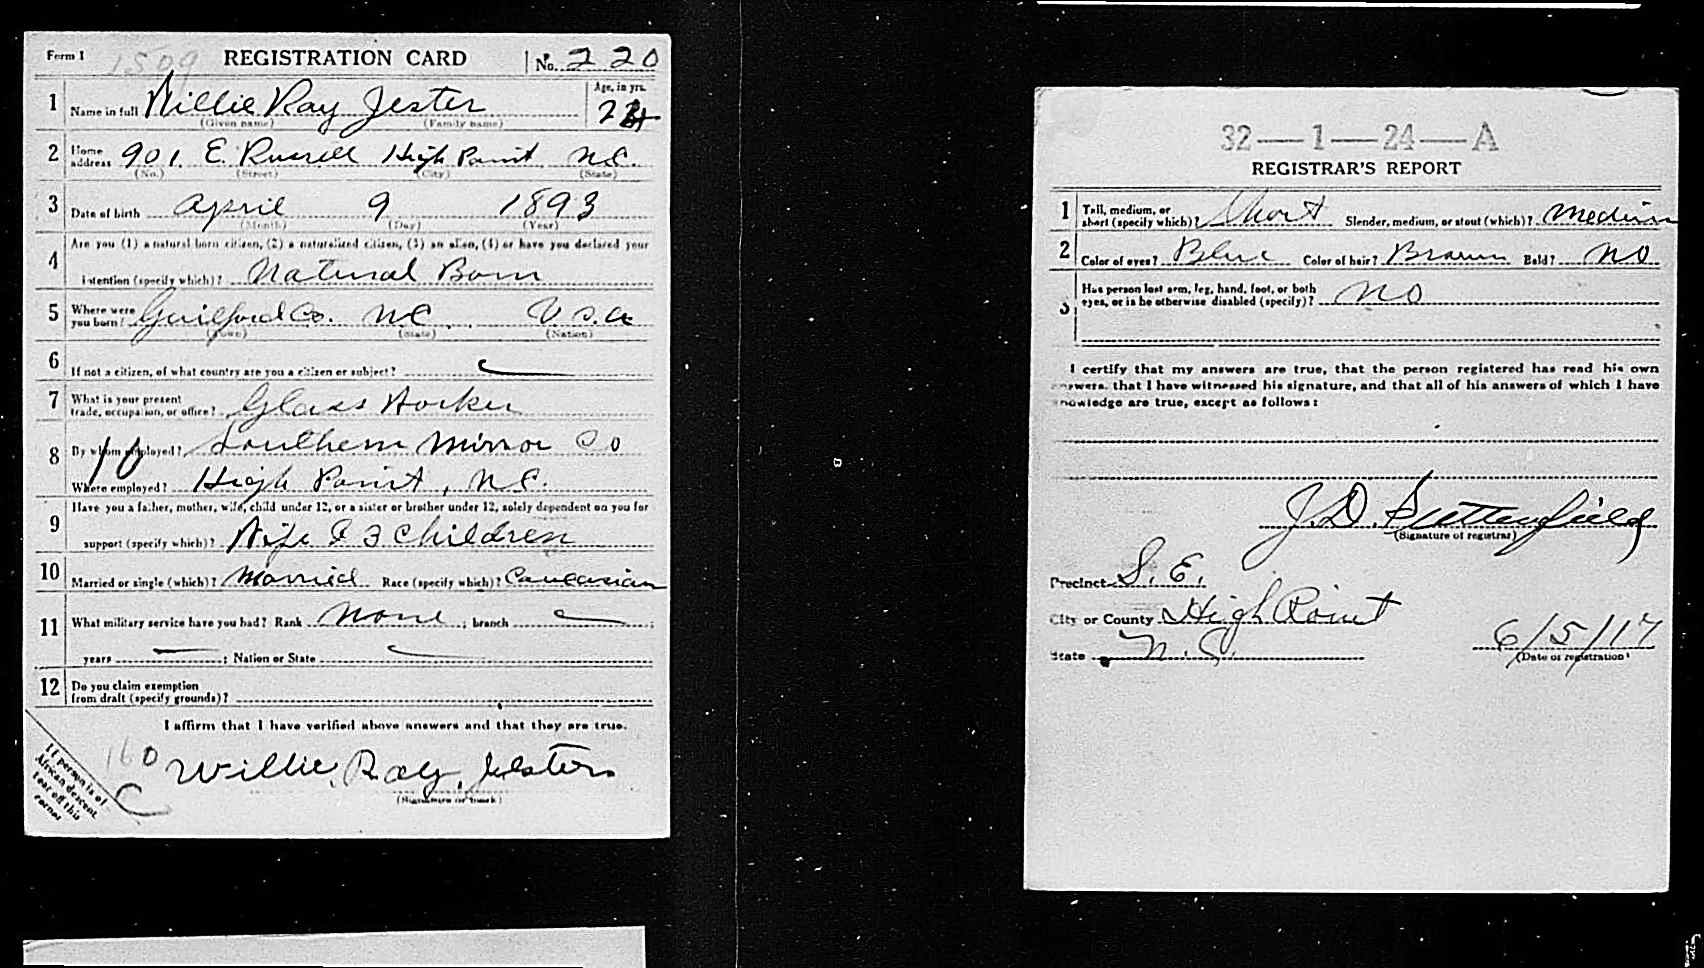 Form 1 1509 REGISTRATION CARD No. 220
1 Name in full Willie Ray Jester Age, in yrs. 24
(Given name) (Family name)
2 Home address 901 E. Russell High Point N.C.
(No.) (Street) (City) (State)
3 Date of birth April 9 1893
(Month) (Day) (Year)
4 Are you (1) a natural born citizen, (2) a naturalized citizen, (3) an alien, (4) or have you declared your
intention (specify which)? Natural Born
5 Where were you born? Guilford Co. N.C. U.S.A
(Town) (State) (Nation)
6 If not a citizen, of what country are you a citizen or subject?
7 What is your present trade, occupation, or office? Glass Worker
8 By whom employed? Southern Mirror Co
Where employed? High Point, N.C.
9 Have you a father, mother, wife, child under 12, or a sister or brother under 12, solely dependent on you for
support (specify which)? Wife & 3 children
10 Married or single (which)? Married Race (specify which)? Caucasian
11 What military service have you had? Rank None ; branch ;
years ; Nation or State
12 Do you claim exemption
from draft (specify grounds)?
I affirm that I have verified above answers and that they are true.
160 Willie Ray Jester
(Signature or mark)
If person is of
African descent,
tear off this
corner
32—1—24—A
REGISTRAR'S REPORT
1 Tall, medium, or short (specify which)? Short Slender, medium, or stout (which)? Medium
2 Color of eyes? Blue Color of hair? Brown Bald? No
3 Has person lost arm, leg, hand, foot, or both
eyes, or is he otherwise disabled (specify)? No
I certify that my answers are true, that the person registered has read his own
answers, that I have witnessed his signature, and that all of his answers of which I have
knowledge are true, except as follows:
(Signature of registrar)
Precinct S. E.
City or County High Point
State N. C. 6/5/17
(Date of registration)